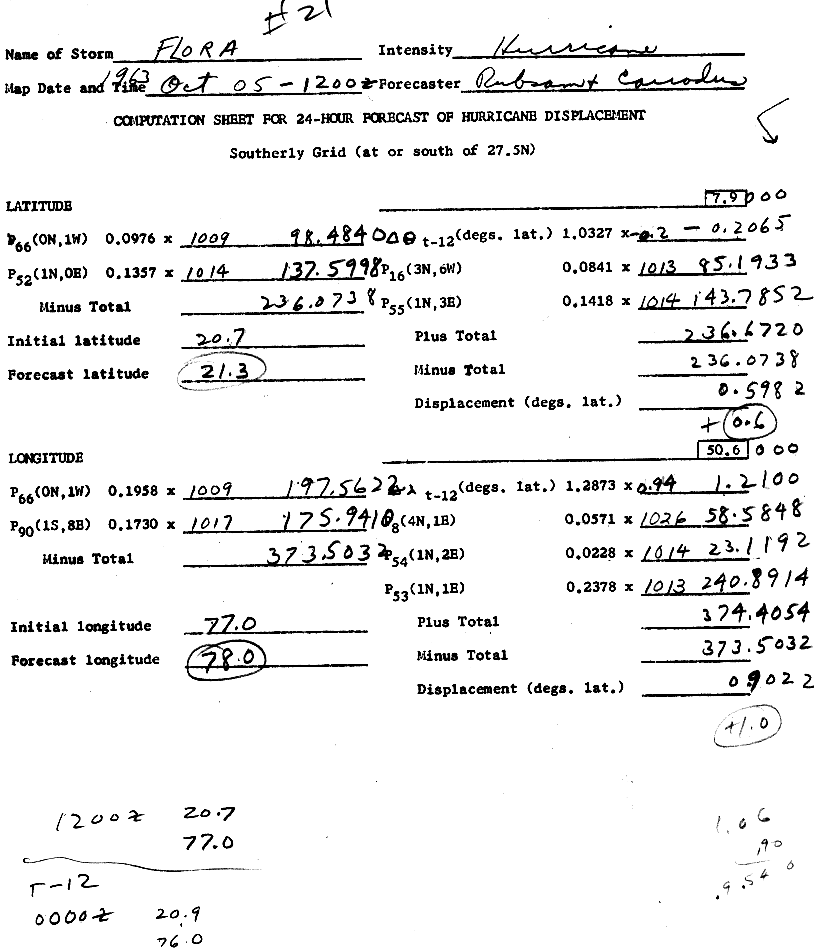 #21
Name of Storm FLORA Intensity Hurricane
Map Date and Time 1963 Oct 05-1200Z Forecaster Rubsam + Carrodus
COMPUTATION SHEET FOR 24-HOUR FORECAST OF HURRICANE DISPLACEMENT
Southerly Grid (at or south of 27.5N)
LATITUDE 7.9000
P66(0N,1W) 0.0976 x 1009 98.4840 t-12(degs. lat.) 1.0327 x -0.2 - 0.2065
P52(1N,0E) 0.1357 x 1014 137.5998 P16(3N,6W) 0.0841 x 1013 85.1933
Minus Total 236.0738 P55(1N,3E) 0.1418 x 1014 143.7852
Initial latitude 20.7 Plus Total 236.6720
Forecast latitude 21.3 Minus Total 236.0738
Displacement (degs. lat.) 0.5982
+0.6
LONGITUDE 50.6000
P66(0N,1W) 0.1958 x 1009 197.5622 t-12(degs. lat.) 1.2873 x 0.94 1.2100
P90(1S,8E) 0.1730 x 1017 175.9410 P8(4N,1E) 0.0571 x 1026 58.5848
Minus Total 373.5032 P54(1N,2E) 0.0228 x 1014 23.1192
P53(1N,1E) 0.2378 x 1013 240.8914
Initial longitude 77.0 Plus Total 374.4054
Forecast longitude 78.0 Minus Total 373.5032
Displacement (degs. lat.) 09022
+1.0
1200Z 20.7
77.0
T-12
0000Z 20.9
76.0
1.06
.90
.9540